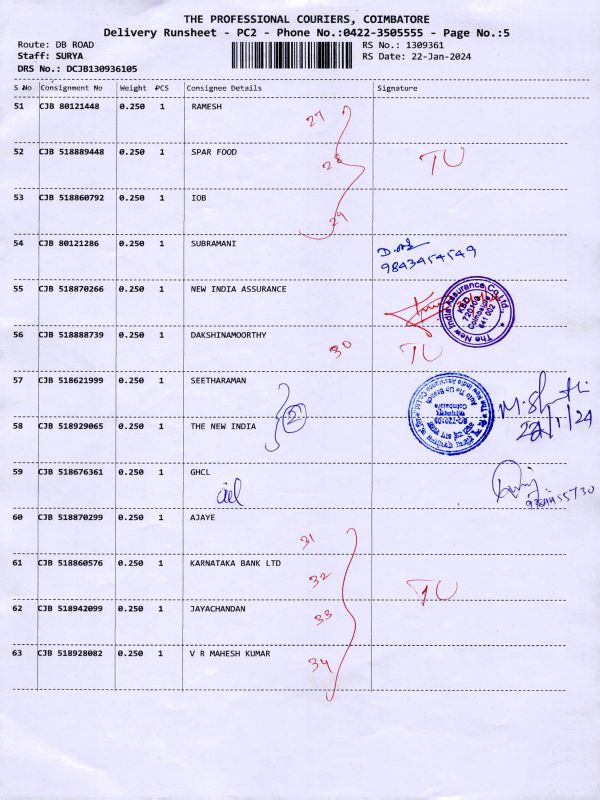 THE PROFESSIONAL COURIERS, COIMBATORE
Delivery Runsheet - PC2 - Phone No.:0422-3505555 - Page No.:5
Route: DB ROAD RS No.: 1309361
Staff: SURYA RS Date: 22-Jan-2024
DRS No.: DCJB130936105
S No Consignment No Weight PCS Consignee Details Signature
51 CJB 80121448 0.250 1 RAMESH 27
52 CJB 518889448 0.250 1 SPAR FOOD 28 TU
53 CJB 518860792 0.250 1 IOB 29
54 CJB 80121286 0.250 1 SUBRAMANI
9843454549
55 CJB 518870266 0.250 1 NEW INDIA ASSURANCE
The New India Assurance Co. Ltd.
KBD
720103
Coimbatore
641 002
56 CJB 518888739 0.250 1 DAKSHINAMOORTHY 30 TU
57 CJB 518621999 0.250 1 SEETHARAMAN
58 CJB 518929065 0.250 1 THE NEW INDIA
59 CJB 518676361 0.250 1 GHCL
60 CJB 518870299 0.250 1 AJAYE 31
61 CJB 518860576 0.250 1 KARNATAKA BANK LTD 32 TU
62 CJB 518942099 0.250 1 JAYACHANDAN 33
63 CJB 518928082 0.250 1 V R MAHESH KUMAR 34